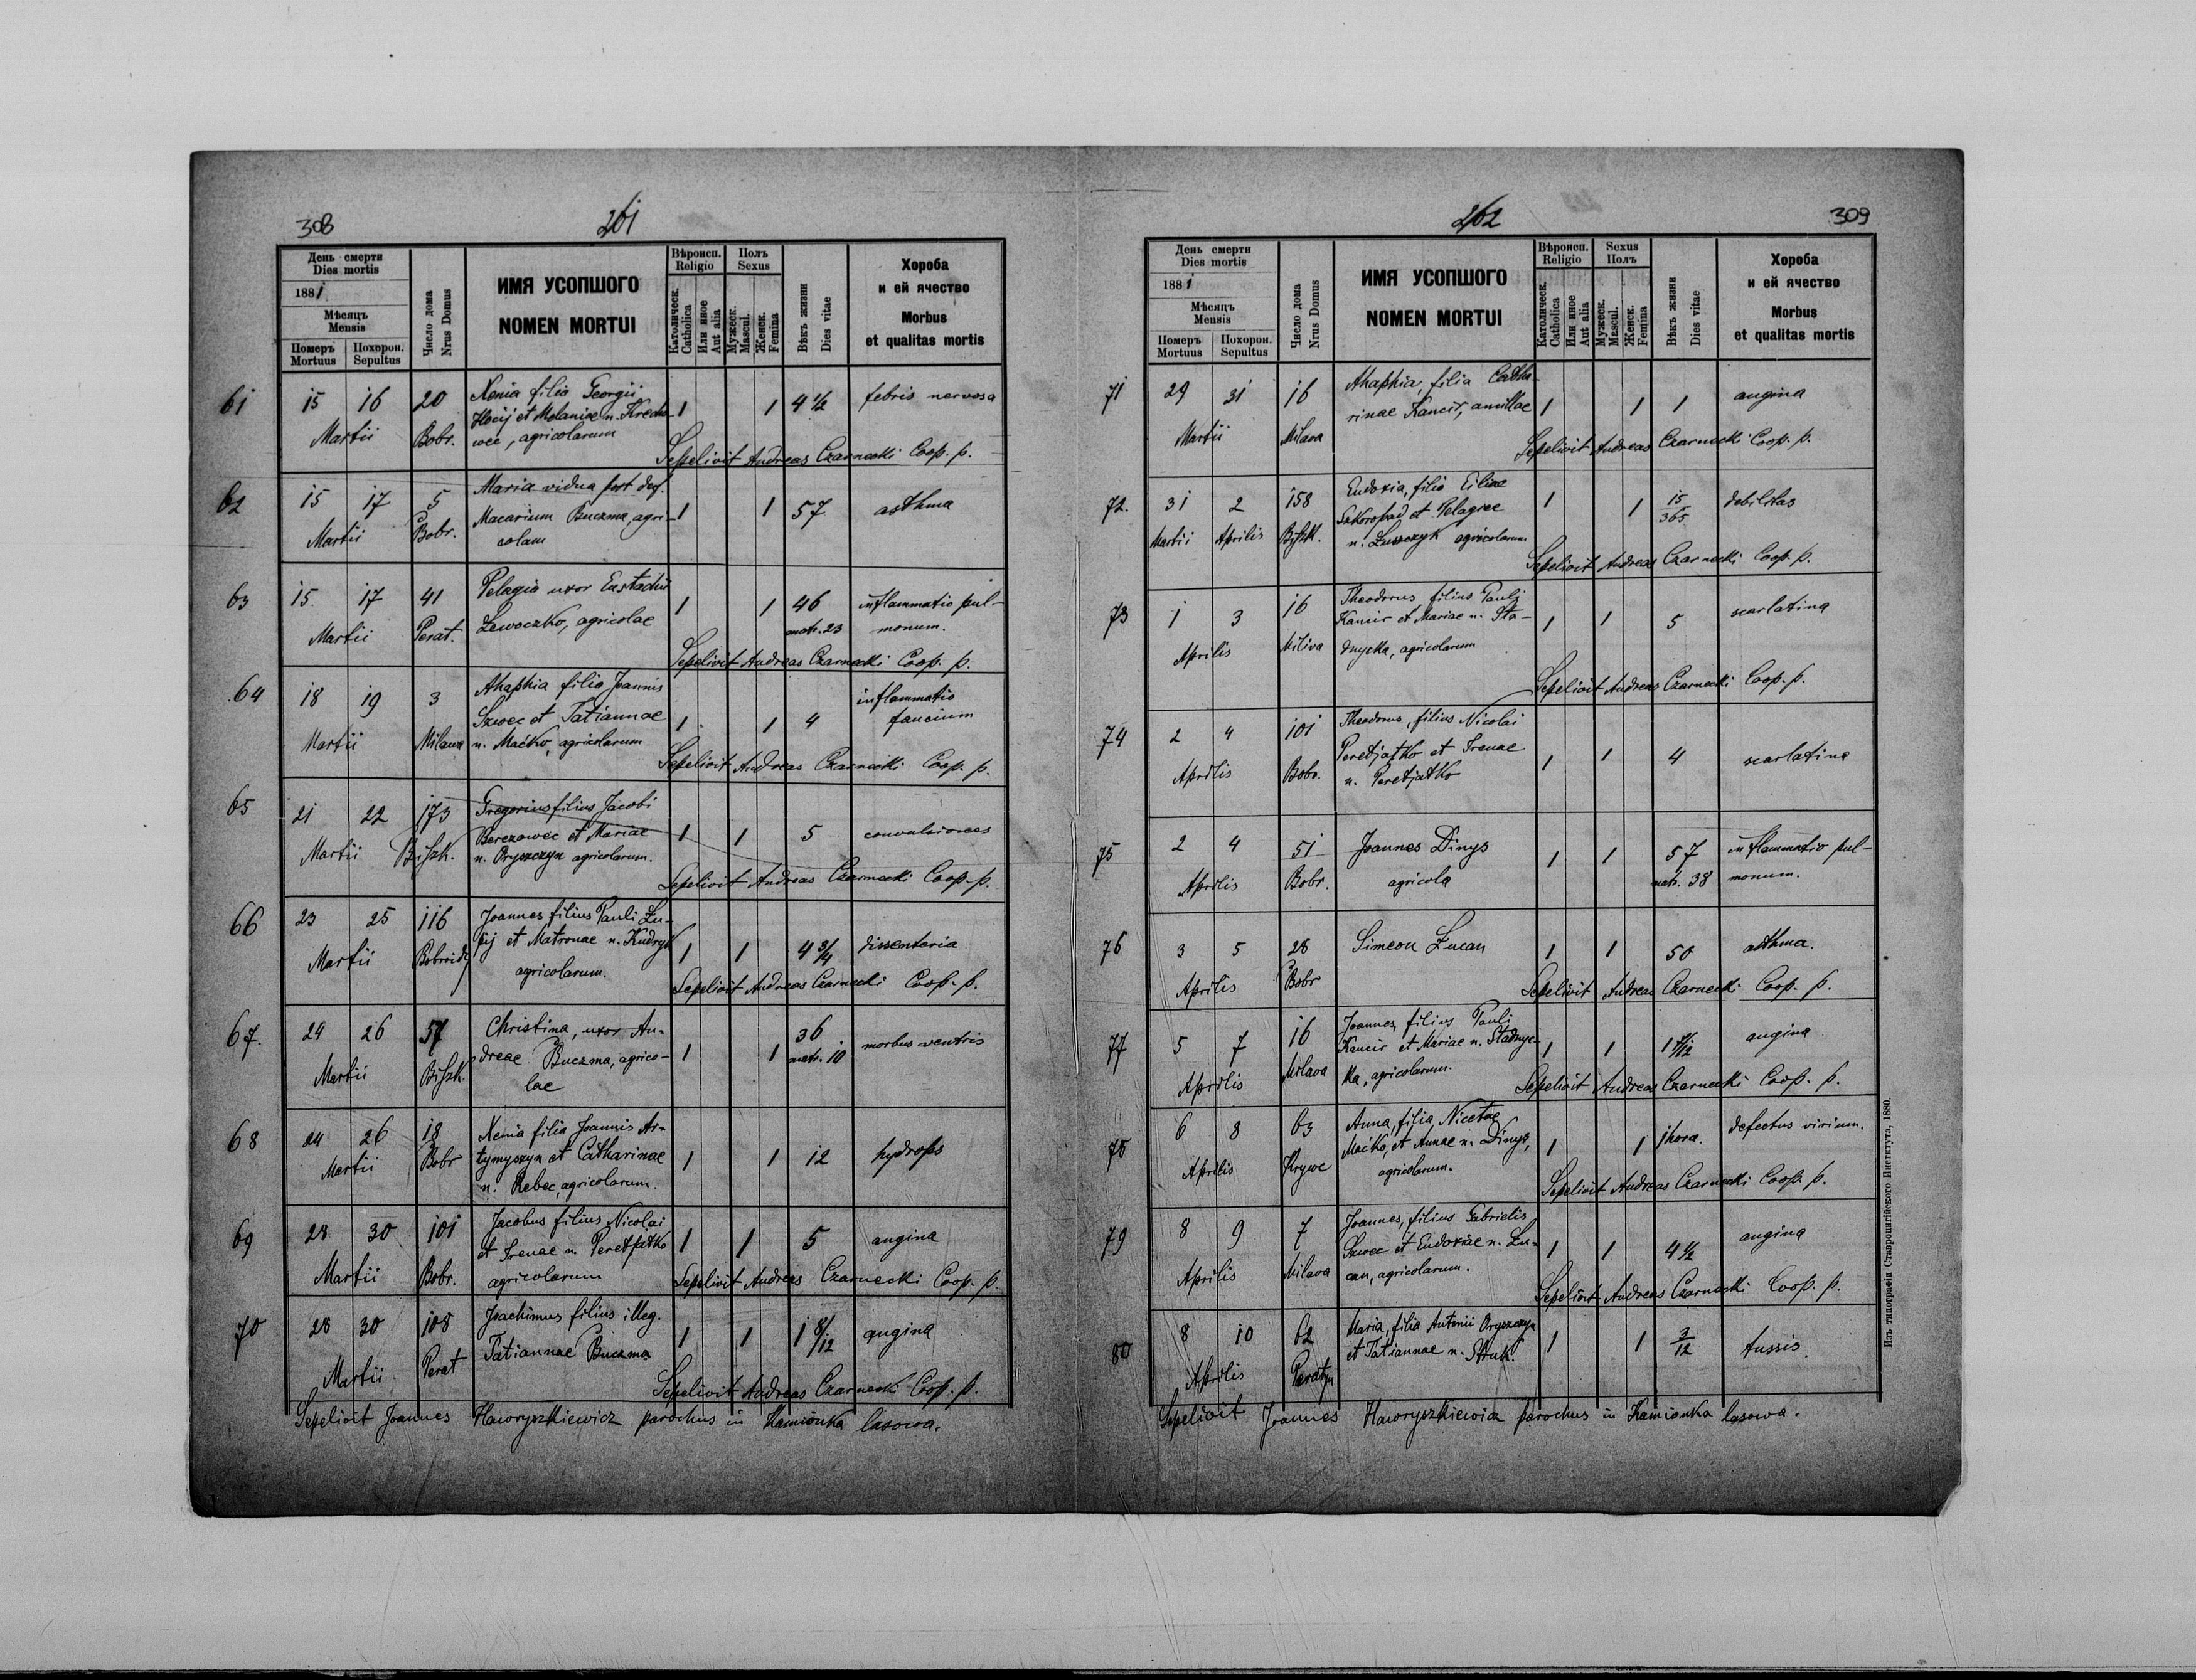 308
261
День смерти
Dies mortis
1881
Мѣсяцъ
Mensis
Померъ
Mortuus
Похорон.
Sepultus
Число дома
Nrus Domus
ИМЯ УСОПШОГО
NOMEN MORTUI
Вѣроисп.
Religio
Католическ.
Catholica
Или иное
Aut alia
Полъ
Sexus
Мужеск.
Mascul.
Женск.
Femina
Вѣкъ жизни
Dies vitae
Хороба
и ей ячество
Morbus
et qualitas mortis
61 15 16 20 Xenia filia Georgii 1 1 4 1/2 febris nervosa
Martii Bobr. et Melaniae n.
agricolarum
Sepelivit Andreas Czarnecki Coop. p.
62 15 17 5 Maria vidua post def. 1 1 57 asthma
Martii Bobr. Macarium Buczma, agri-
colam
63 15 17 41 Pelagia uxor Eustachii 1 1 46 inflammatio pul-
Martii Perat. Lewoczko, agricolae matr. 23 monum.
Sepelivit Andreas Czarnecki Coop. p.
64 18 19 3 Ahaphia filia Joannis 1 1 4 inflammatio
Szwec et Tatiannae faucium
Martii Milawa n. Maćko, agricolarum
Sepelivit Andreas Czarnecki Coop. p.
65 21 22 173 Gregorius filius Jacobi 1 1 5 convulsiones
Berezowec et Mariae
Martii Biszk. n. Oryszczyn agricolarum.
Sepelivit Andreas Czarnecki Coop. p.
66 23 25 116 Joannes filius Pauli Zu- 1 1 4 3/4 dissenteria
Martii et Matronae n. Kudryk
agricolarum.
Sepelivit Andreas Czarnecki Coop. p.
67. 24 26 57 Christina, uxor An- 1 1 36 morbus ventris
dreae Buczma, agrico- matr. 10
Martii Biszk. lae
68 24 26 18 Xenia filia Joannis Ar- 1 1 12 hydrops
Martii Bobr tymyszyn et Catharinae
n. Rebec, agricolarum.
69 28 30 101 Jacobus filius Nicolai 1 1 5 angina
et Irenae n. Peretjatko
Martii Bobr. agricolarum
Sepelivit Andreas Czarnecki Coop. p.
70 28 30 108 Joachimus filius illeg. 1 1 1 8/12 angina
Martii Perat Tatiannae Buczma
Sepelivit Andreas Czarnecki Coop. p.
Sepelivit Joannes Haworyszkiewicz parochus in Kamionka lasowa.
262
309
День смерти
Dies mortis
1881
Мѣсяцъ
Mensis
Померъ
Mortuus
Похорон.
Sepultus
Число дома
Nrus Domus
ИМЯ УСОПШОГО
NOMEN MORTUI
Вѣроисп.
Religio
Католическ.
Catholica
Или иное
Aut alia
Sexus
Полъ
Мужеск.
Mascul.
Женск.
Femina
Вѣкъ жизни
Dies vitae
Хороба
и ей ячество
Morbus
et qualitas mortis
71 29 31 16 Ahaphia, filia Catha- 1 1 1 angina
Martii Milava rinae Kancir, ancillae
Sepelivit Andreas Czarnecki Coop. p.
72. 31 2 158 Eudoxia, filia Eiliae 1 1 15/365 debilitas
Martii Aprilis Biszk. Szkoropad et Pelagiae
n. Luszczyk agricolarum
Sepelivit Andreas Czarnecki Coop. p.
73 1 3 16 Theodorus filius Pauli 1 1 5 scarlatina
Kancir et Mariae n. Sta-
Aprilis Miliva dnycka, agricolarum
Sepelivit Andreas Czarnecki Coop. p.
74 2 4 101 Theodorus, filius Nicolai 1 1 4 scarlatina
Peretjatko et Irenae
Aprilis Bobr. n. Peretjatko
75 2 4 51 Joannes Dinys 1 1 57 inflammatio pul-
Aprilis Bobr. agricola matr. 38 monum.
76 3 5 28 Simeon Lucan 1 1 50 asthma.
Aprilis Bobr
Sepelivit Andreas Czarnecki Coop. p.
77 5 7 16 Joannes, filius Pauli 1 1 angina
Kancir et Mariae n. Stadnyc-
Aprilis Milava ka, agricolarum.
Sepelivit Andreas Czarnecki Coop. p.
78 6 8 63 Anna, filia Nicetae 1 1 1 hora. defectus virium.
Maćko, et Annae n. Dinys,
Aprilis Krywe agricolarum.
Sepelivit Andreas Czarnecki Coop. p.
79 8 9 7 Joannes, filius Gabrielis 1 1 4 1/2 angina
Szwec et Eudoxiae n. Lu-
Aprilis Milava can, agricolarum.
Sepelivit Andreas Czarnecki Coop. p.
80 8 10 62 Maria, filia Antonii Oryszczyn 1 1 3/12 tussis
et Tatiannae n. Struk.
Aprilis Peratyn
Sepelivit Joannes Haworyszkiewicz parochus in Kamionka lasowa.
Изъ типографіи Ставропигійского Института, 1880.